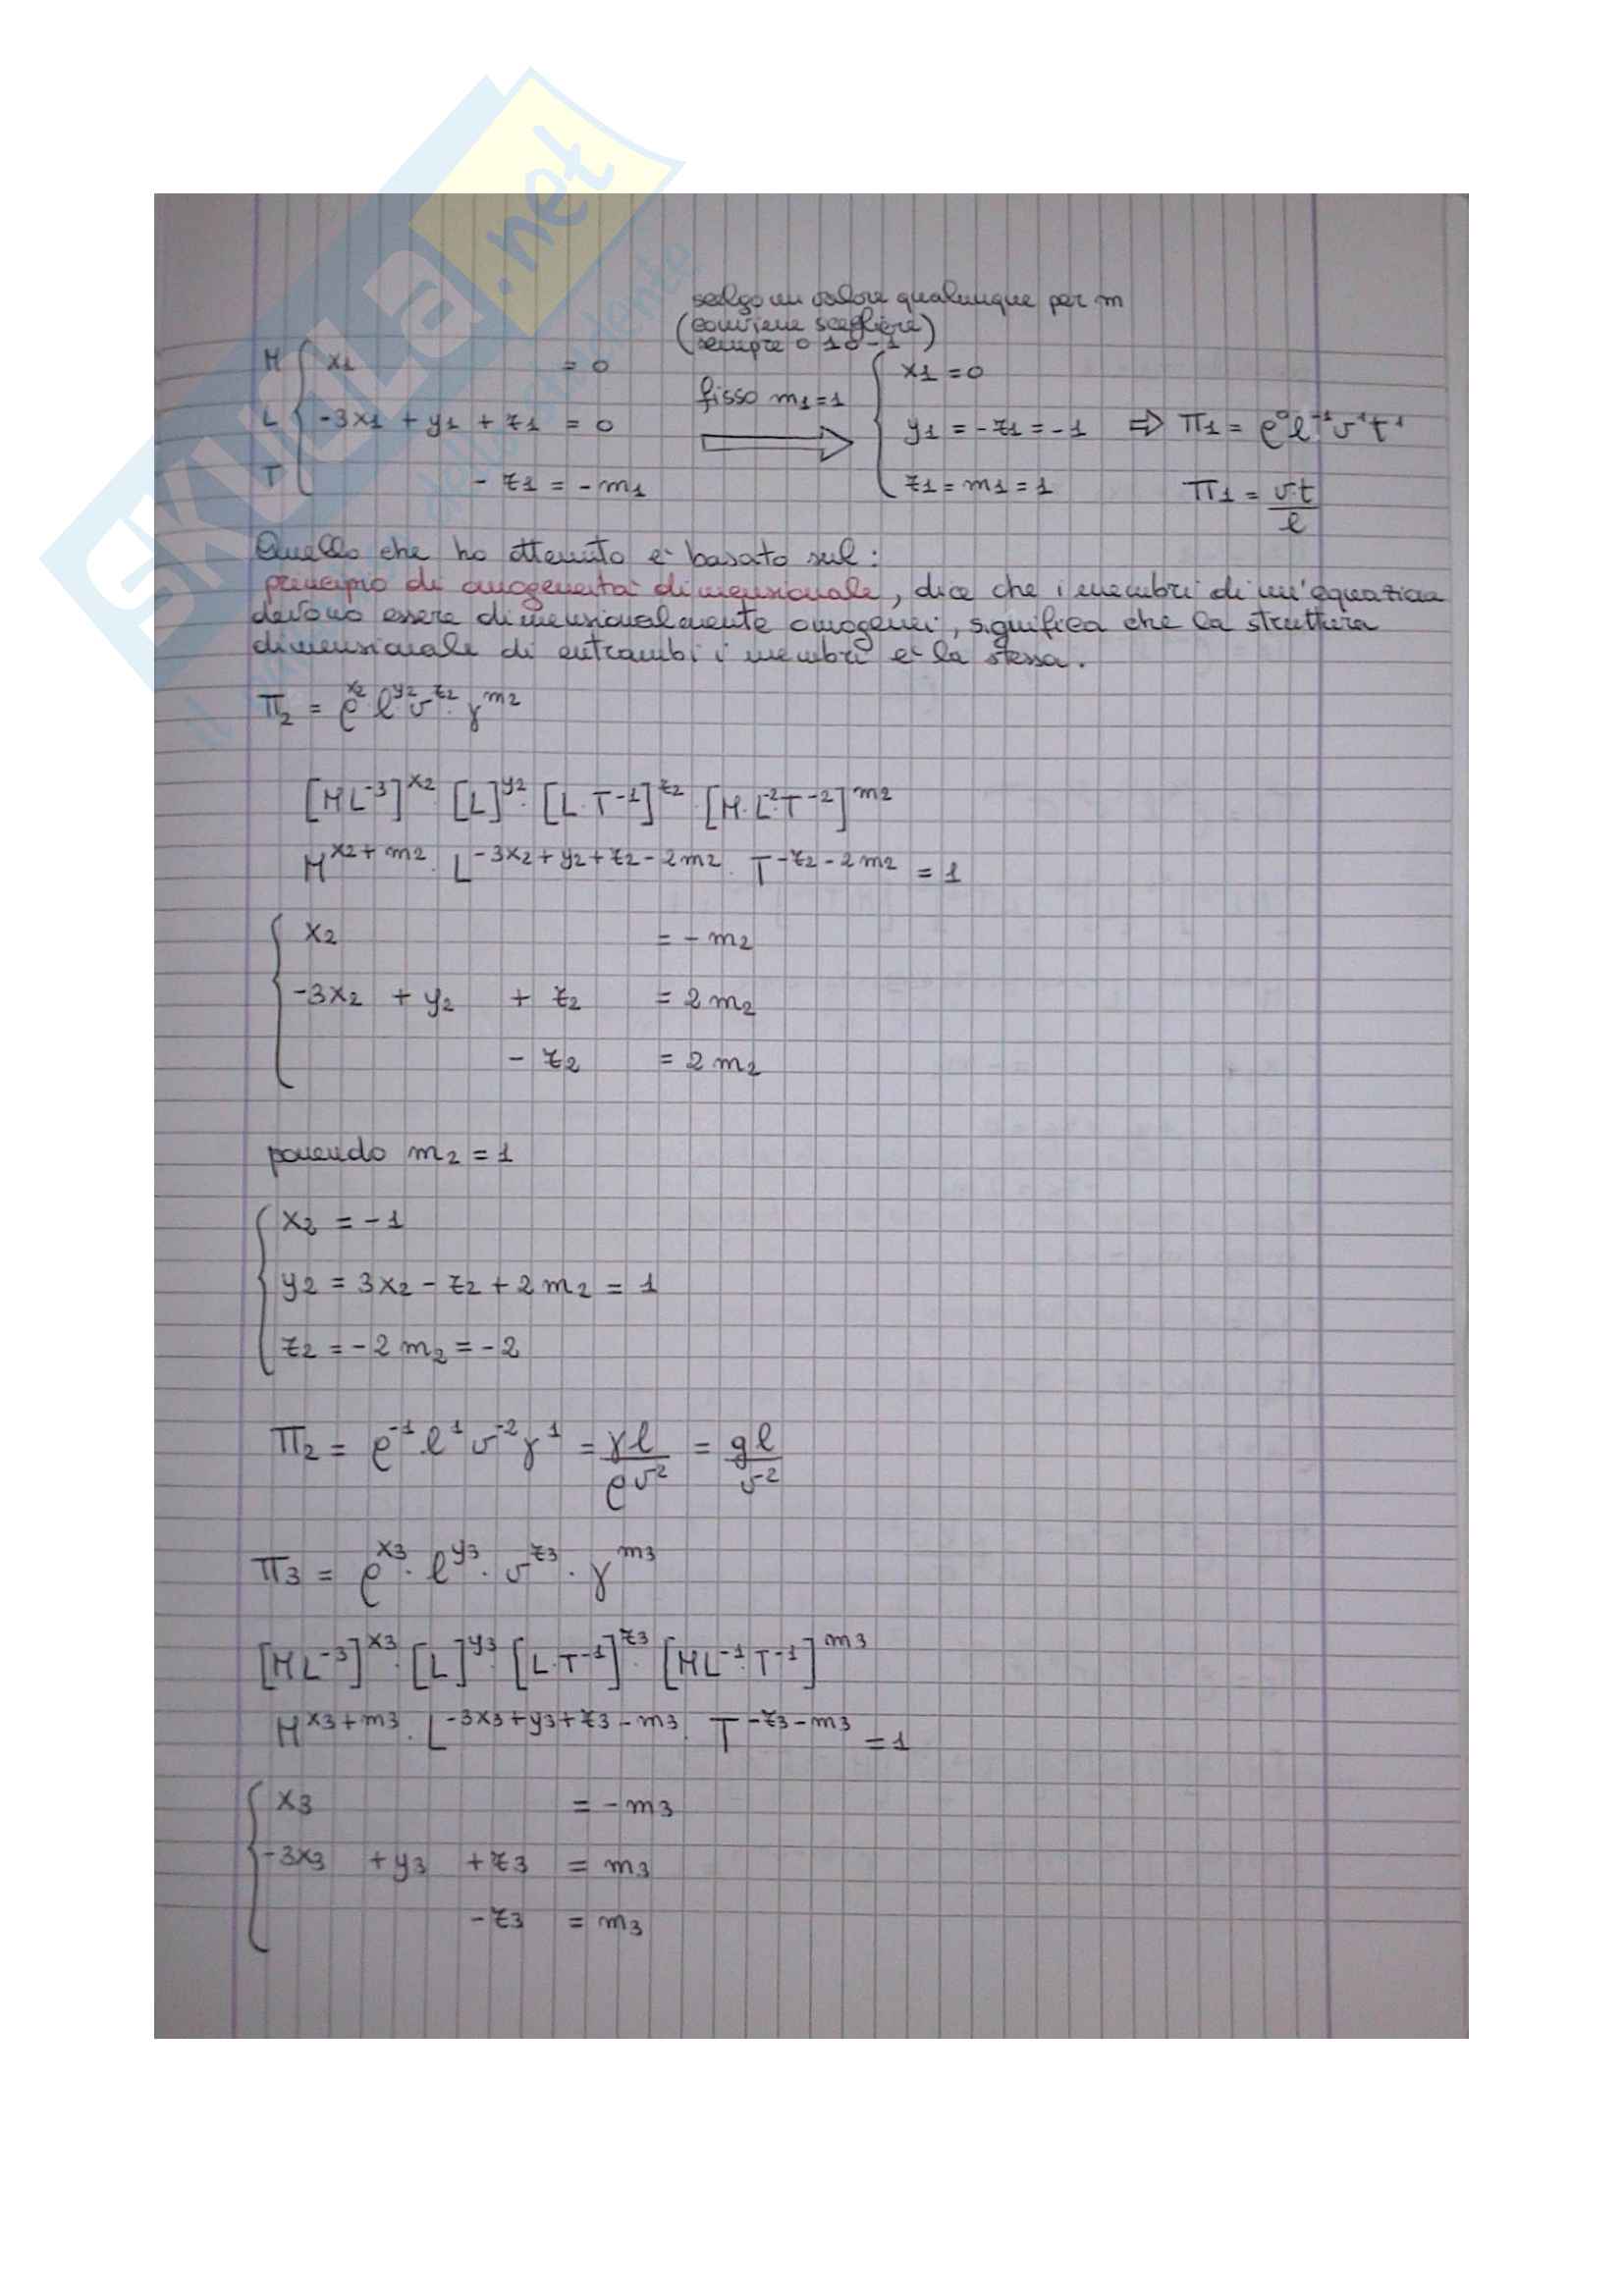 SKUOLA.net
scelgo un valore qualunque per m
(conviene scegliere)
sempre o 1 o -1
M { x1 = 0
fisso m1=1
x1 = 0
L { -3x1 + y1 + z1 = 0
y1 = -z1 = -1 ⇒ π1 = ρ⁰ l⁻¹ v¹ t¹
T { - z1 = - m1
z1 = m1 = 1
π1 = v·t / l
Quello che ho ottenuto è basato sul:
principio di omogeneità dimensionale, dice che i membri di un'equazion
devono essere dimensionalmente omogenei, significa che la struttura
dimensionale di entrambi i membri è la stessa.
π2 = ρ^x2 · l^y2 · v^z2 · γ^m2
[M L^-3]^x2 · [L]^y2 · [L T^-1]^z2 · [M·L^-2·T^-2]^m2
M^x2+m2 · L^-3x2+y2+z2-2m2 · T^-z2-2m2 = 1
x2 = - m2
-3x2 + y2 + z2 = 2 m2
- z2 = 2 m2
ponendo m2 = 1
x2 = -1
y2 = 3x2 - z2 + 2 m2 = 1
z2 = -2 m2 = -2
π2 = ρ^-1 · l^1 v^-2 γ^1 = γl / ρv² = gl / v²
π3 = ρ^x3 · l^y3 · v^z3 · γ^m3
[M L^-3]^x3 · [L]^y3 · [L·T^-1]^z3 · [ML^-1·T^-1]^m3
M^x3+m3 · L^-3x3+y3+z3-m3 · T^-z3-m3 = 1
x3 = - m3
-3x3 + y3 + z3 = m3
-z3 = m3